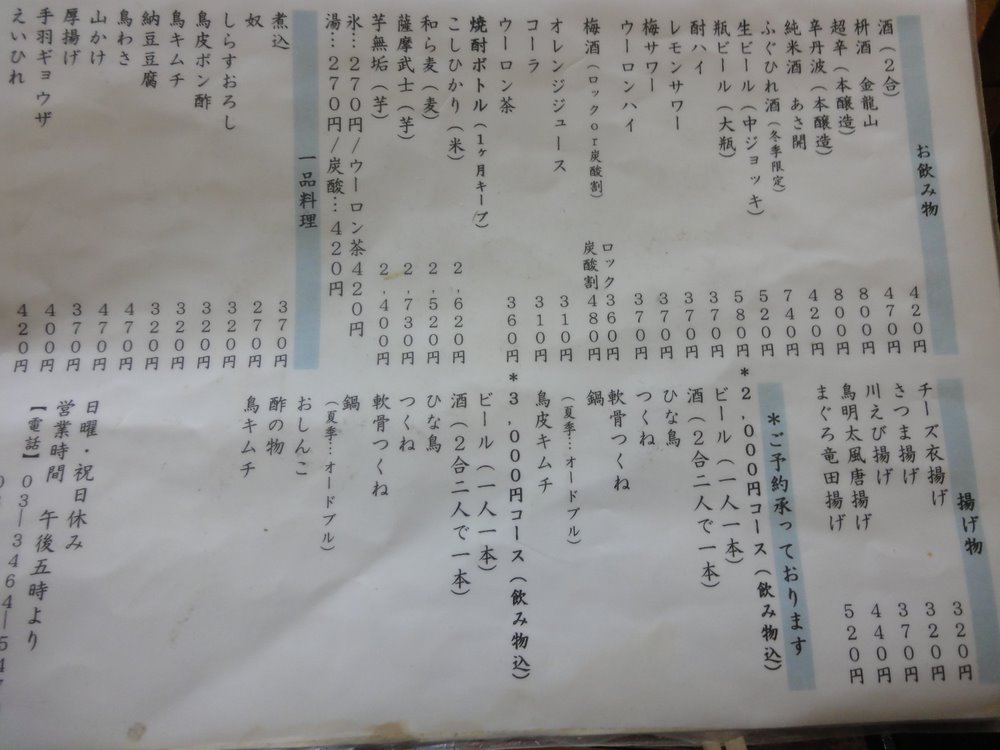 お飲み物
酒(2合) 420円
枡酒 金龍山 470円
超辛(本醸造) 800円
辛丹波(本醸造) 800円
純米酒 あさ開 420円
ふぐひれ酒(冬季限定) 740円
生ビール(中ジョッキ) 520円
瓶ビール(大瓶) 580円
酎ハイ 370円
レモンサワー 370円
梅サワー 370円
ウーロンハイ 370円
梅酒(ロックor炭酸割) ロック360円
炭酸割480円
オレンジジュース 310円
コーラ 310円
ウーロン茶 360円
焼酎ボトル(1ヶ月キープ)
こしひかり(米) 2,620円
和ら麦(麦) 2,520円
薩摩武士(芋) 2,730円
芋無垢(芋) 2,400円
氷…270円/ウーロン茶420円
湯…270円/炭酸…420円
一品料理
煮込 370円
奴 270円
しらすおろし 320円
鳥皮ポン酢 320円
鳥キムチ 320円
納豆豆腐 320円
鳥わさ 470円
山かけ 470円
厚揚げ 370円
手羽ギョウザ 400円
えいひれ 420円
揚げ物
チーズ衣揚げ 320円
さつま揚げ 320円
川えび揚げ 370円
鳥明太風唐揚げ 440円
まぐろ竜田揚げ 520円
*ご予約承っております
*2,000円コース(飲み物込)
ビール(一人一本)
酒(2合二人で一本)
ひな鳥
つくね
軟骨つくね
鍋
(夏季…オードブル)
鳥皮キムチ
*3,000円コース(飲み物込)
ビール(一人一本)
酒(2合二人で一本)
ひな鳥
つくね
軟骨つくね
鍋
(夏季…オードブル)
おしんこ
酢の物
鳥キムチ
日曜・祝日休み
営業時間 午後五時より
【電話】03―3464―547